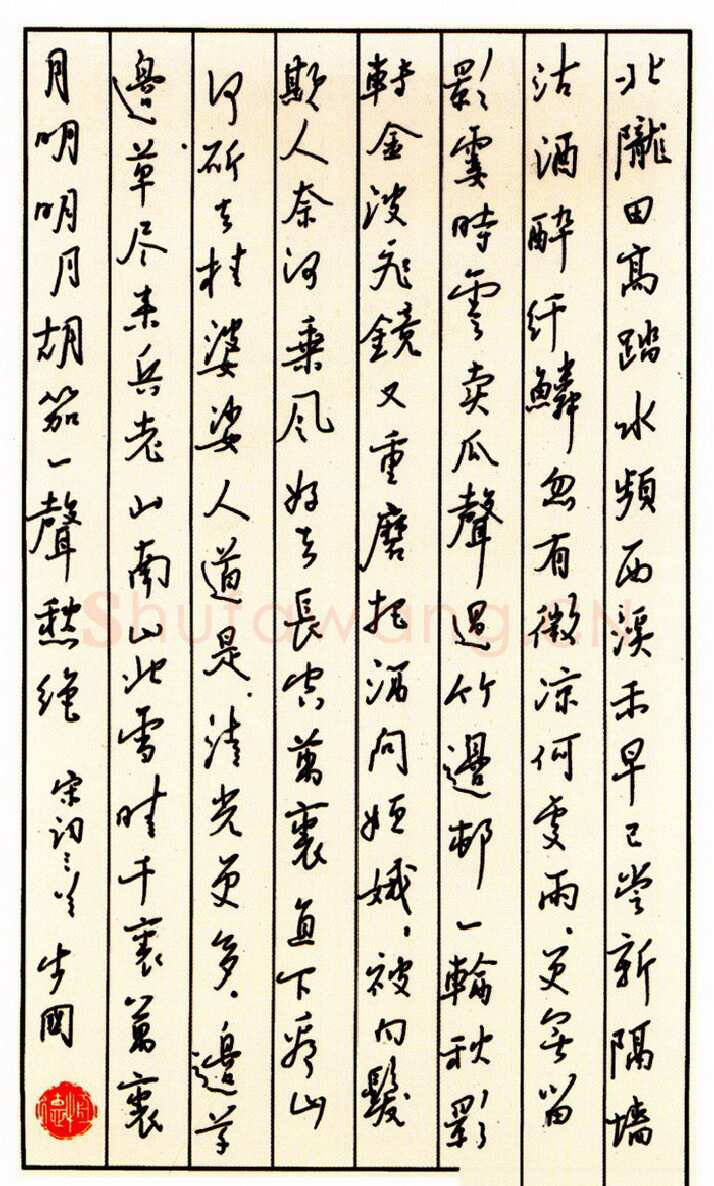 北隴田高踏水頻西溪禾早已嘗新隔墙
沽酒醉纤鱗忽有微凉何處雨、更無留
影霎時雲卖瓜聲過竹邊邨一輪秋影
轉金波飛鏡又重磨把酒问姮娥、被白髮
欺人奈何乘風好去長空萬裏直下看山
河斫去桂婆娑人道是、清光更多、邊草
邊草尽来兵老山南山北雪晴千裏萬裏
月明明月胡笳一聲愁绝 宋词三首 國
Shufawang.CN